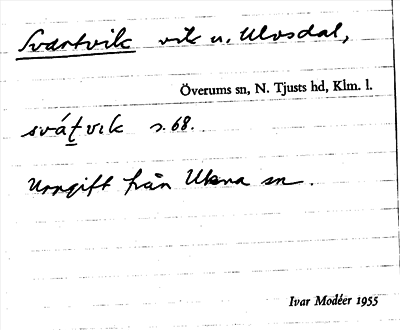 Svartvik vik u. Ulvsdal,
Överums sn, N. Tjusts hd, Klm. l.
svát̲vik s. 68.
Uppgift från Ukna sn.
Ivar Modéer 1955